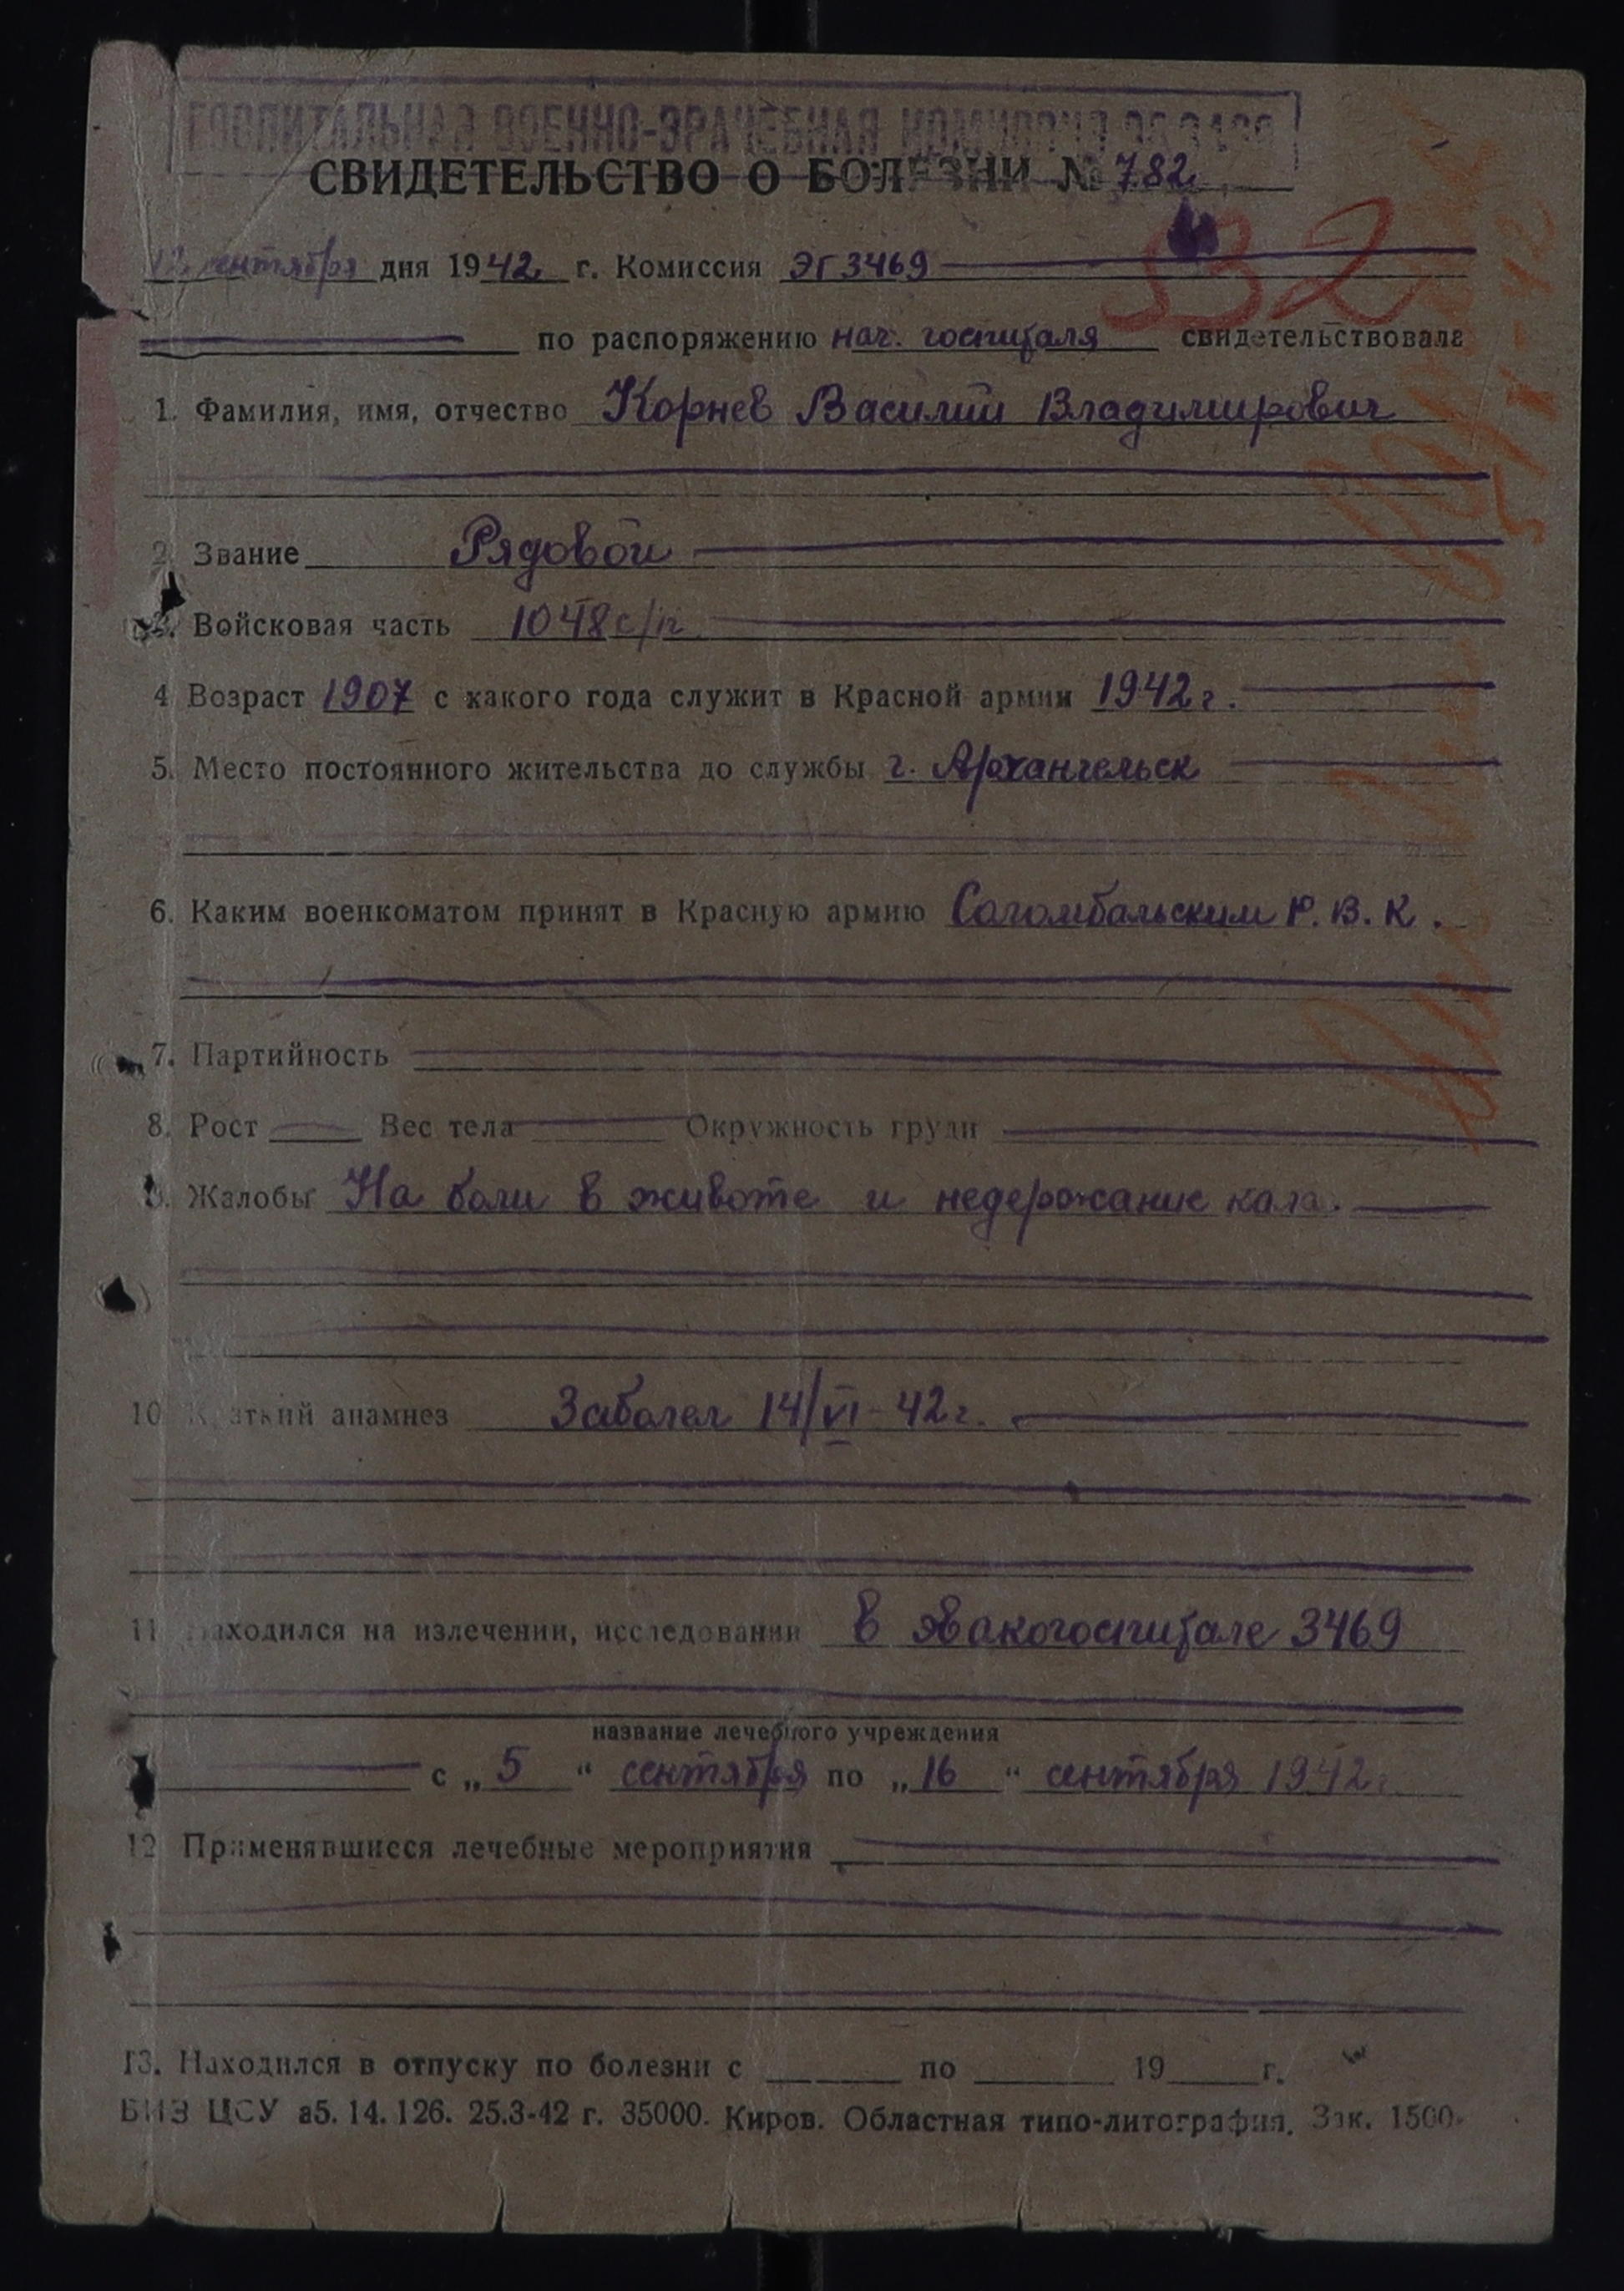 ГОСПИТАЛЬНАЯ ВОЕННО-ВРАЧЕБНАЯ КОМИССИЯ
СВИДЕТЕЛЬСТВО О БОЛЕЗНИ № 782
532
сентября дня 1942 г. Комиссия ЭГ 3469
по распоряжению нач. госпиталя свидетельствовала
1. Фамилия, имя, отчество Корнев Василий Владимирович
2. Звание Рядовой
3. Войсковая часть 1048 с/п
4 Возраст 1907 с какого года служит в Красной армии 1942 г.
5. Место постоянного жительства до службы г. Архангельск
6. Каким военкоматом принят в Красную армию Соломбальским Р.В.К.
7. Партийность
8. Рост Вес тела Окружность груди
9. Жалобы На боли в животе и недержание кала.
10 Краткий анамнез Заболел 14/VI-42 г.
11 Находился на излечении, исследовании в эвакогоспитале 3469
название лечебного учреждения
с „5“ сентября по „16“ сентября 1942 г.
12 Применявшиеся лечебные мероприятия
13. Находился в отпуску по болезни с по 19 г.
БИЗ ЦСУ а5. 14. 126. 25.3-42 г. 35000. Киров. Областная типо-литография. Зак. 1500.